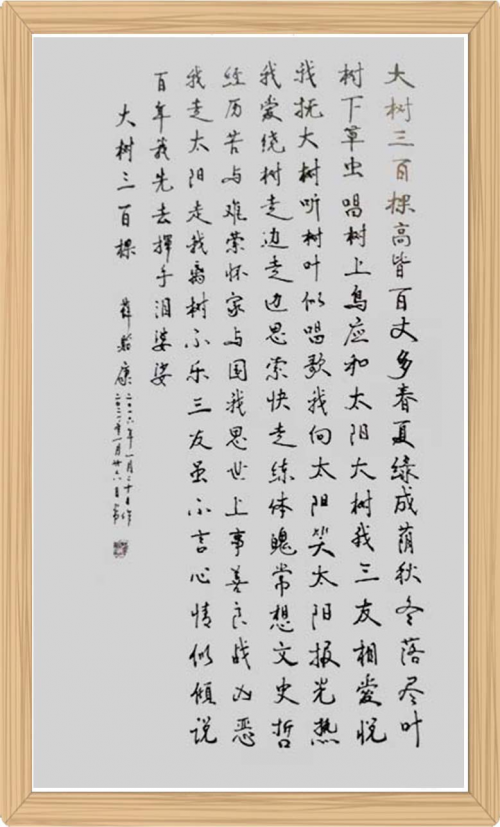 大树三百棵高皆百丈多春夏绿成荫秋冬落尽叶
树下草虫唱树上鸟应和太阳大树我三友相爱悦
我抚大树听树叶似唱歌我向太阳笑太阳报光热
我爱绕树走边走边思索快走练体魄常想文史哲
经历苦与难萦怀家与国我思世上事善良战凶恶
我走太阳走我离树不乐三友虽不言心情似倾说
百年我先去挥手泪婆娑
大树三百棵
薛
康
二〇一六年一月二十日作
二〇二一年一月廿六日书